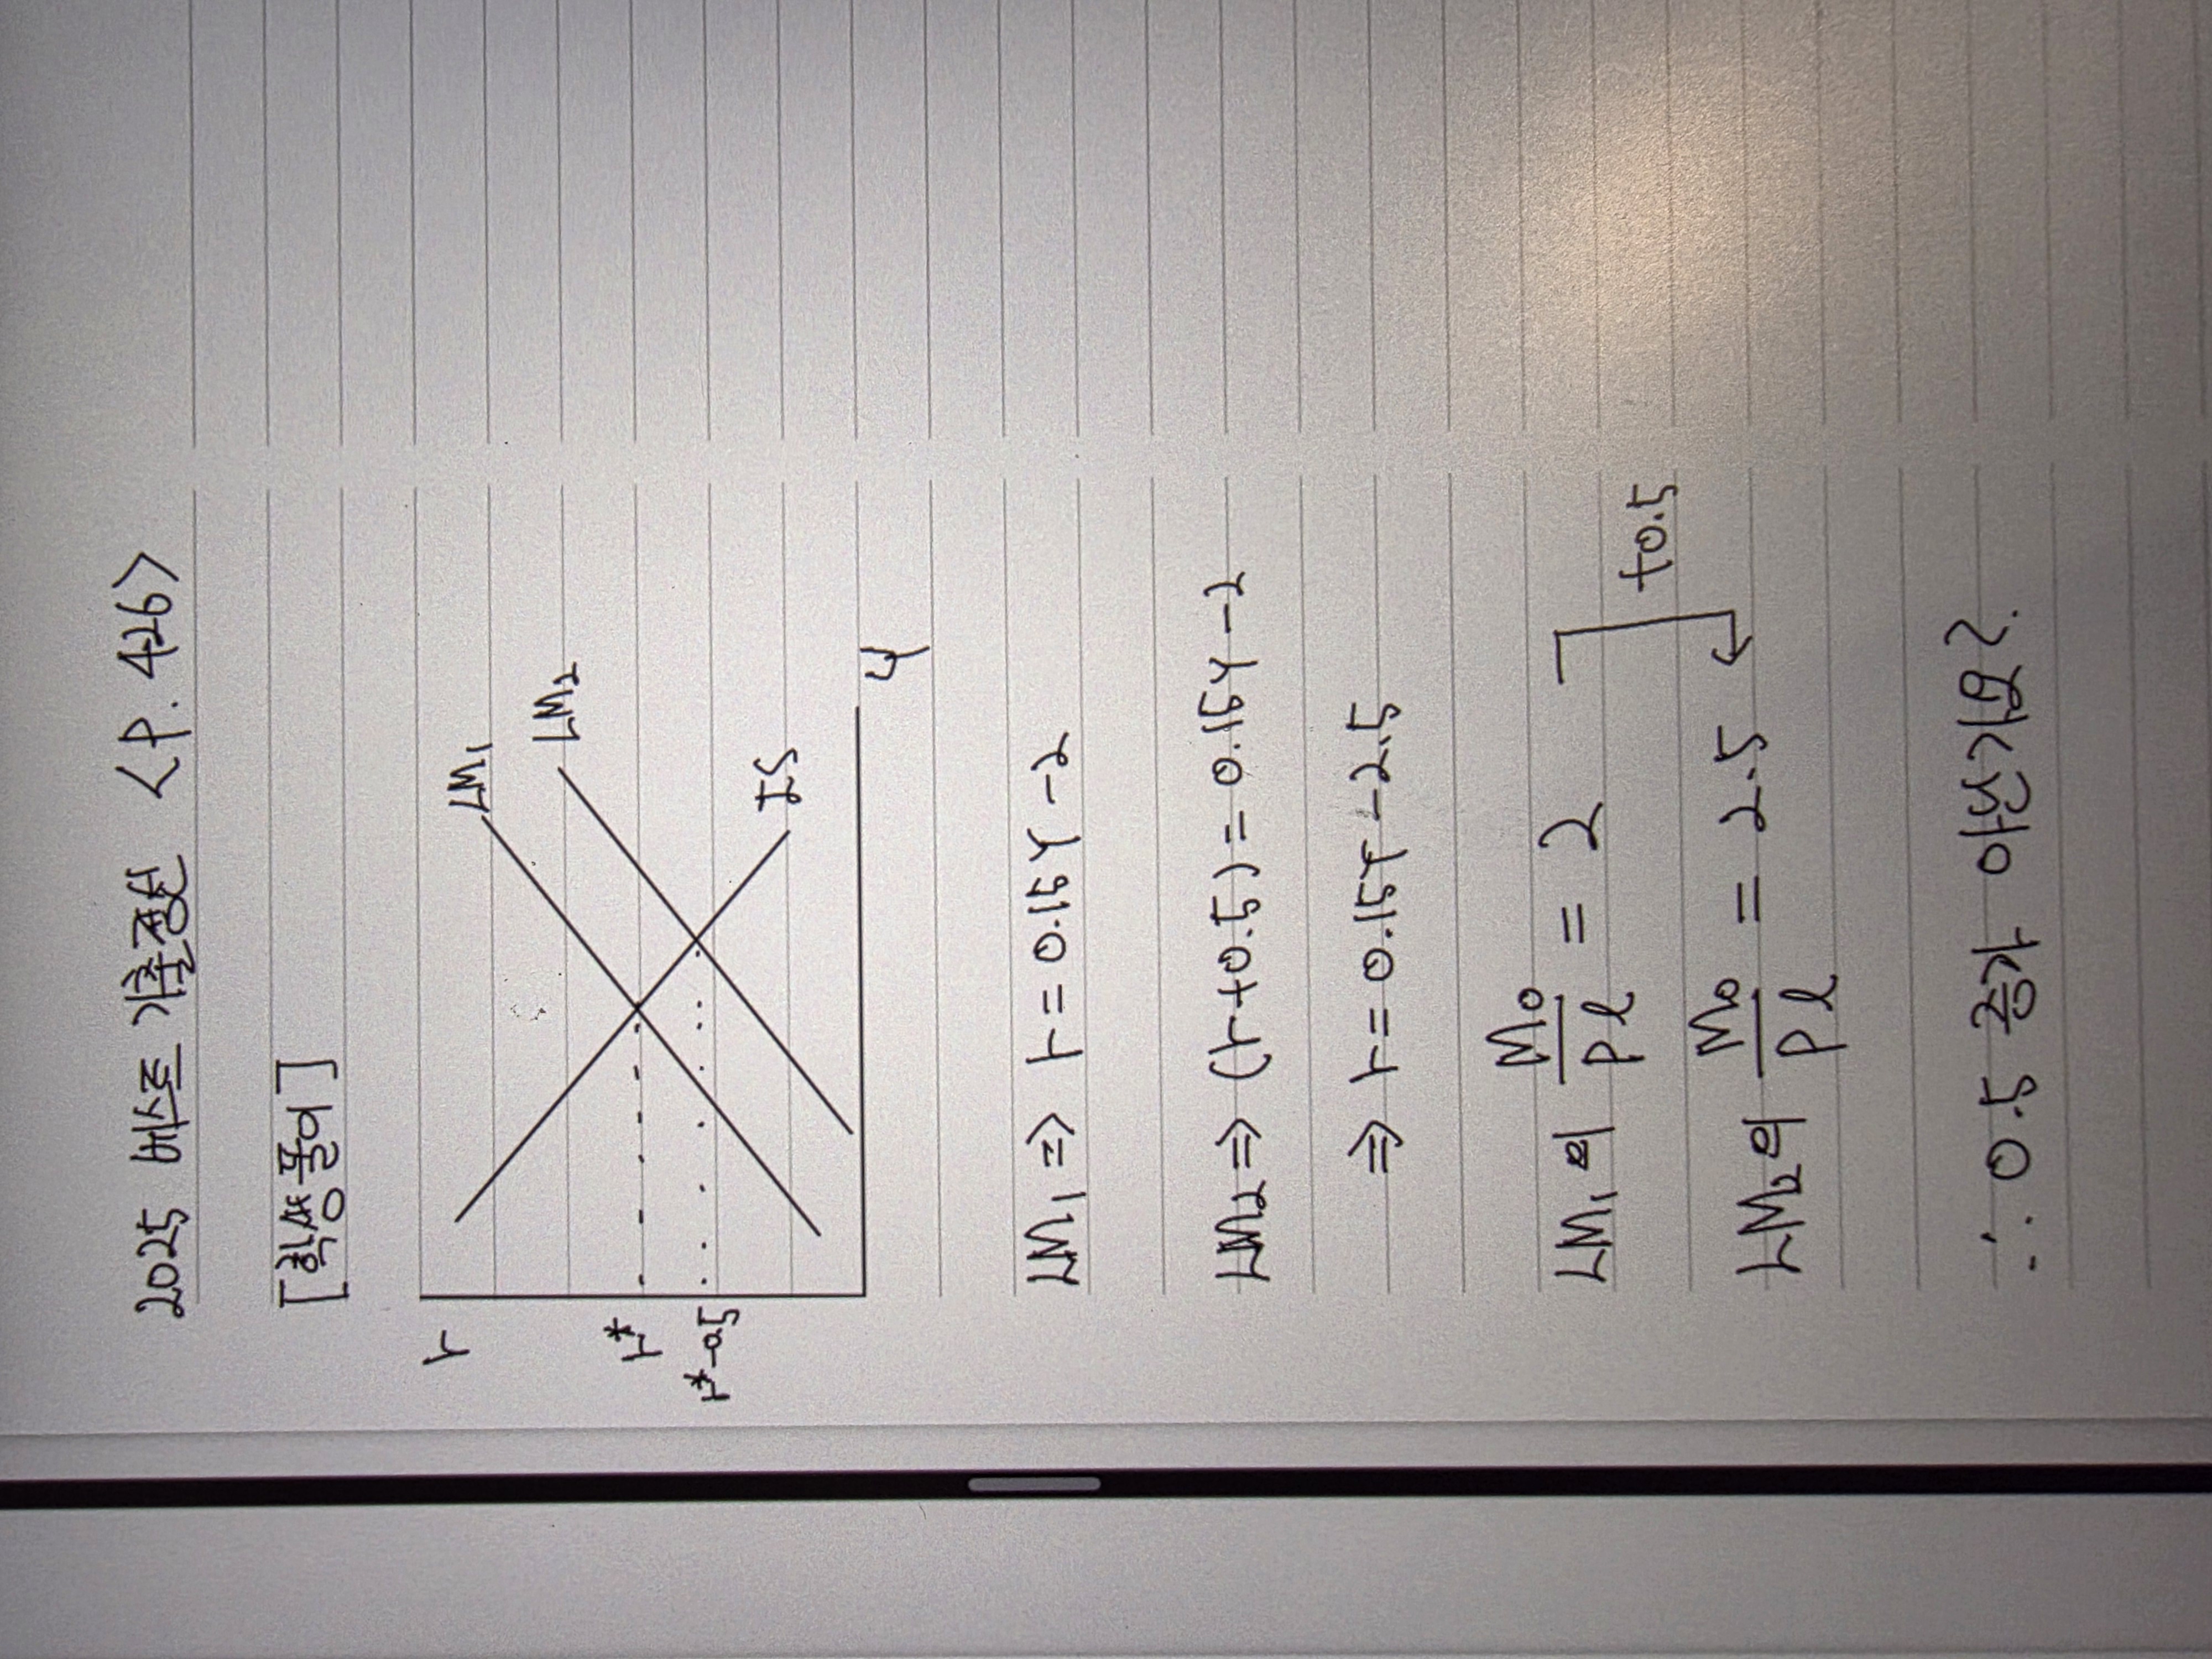 2025 베스트 기출정선 <P.426>
[학생풀이]
r
LM1
LM2
r*
r*-0.5
IS
y
LM1 => r = 0.15Y -2
LM2 => (r+0.5) = 0.15Y -2
=> r = 0.15Y -2.5
LM1의 M0/Pl = 2
+0.5
LM2의 M0/Pl = 2.5
∴ 0.5 증가 아닌가요?